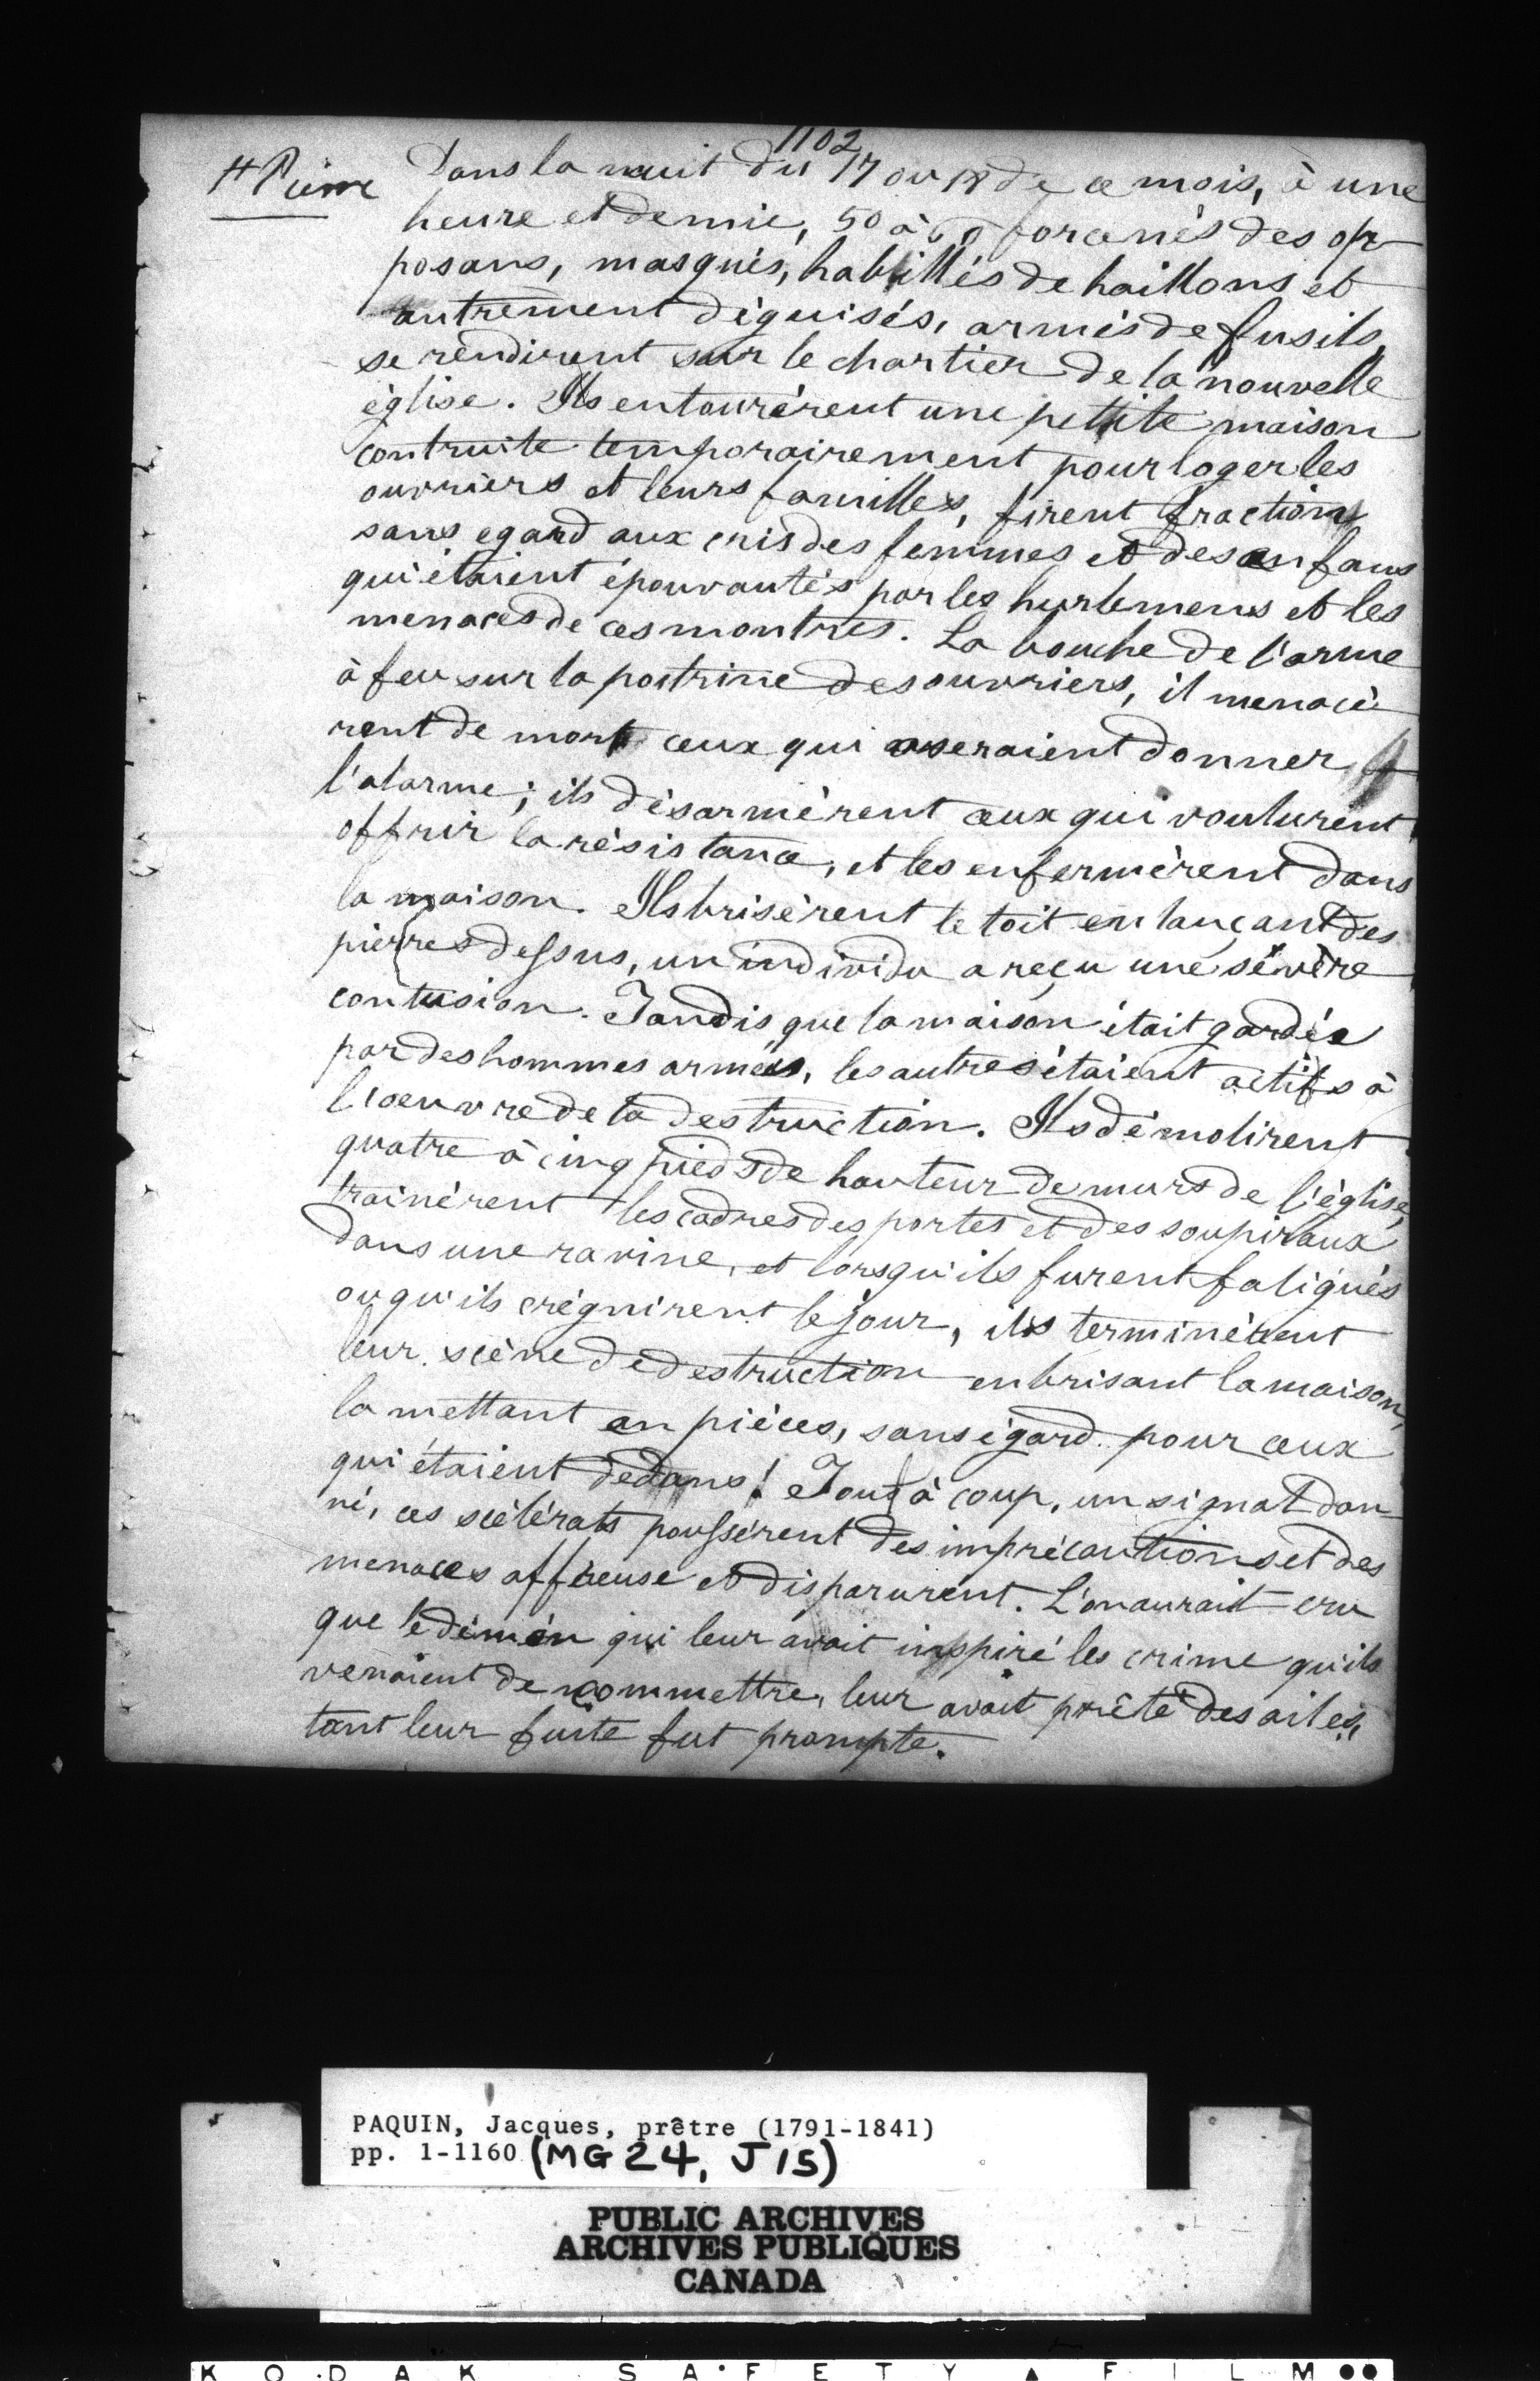 1102
# Pierre Dans la nuit du 17 ou 18 de ce mois, à une
heure et demie, 50 à 60 forcenés des op-
posans, masqués, habillés de haillons et
autrement déguisés, armés de fusils,
se rendirent sur le chartier de la nouvelle
église. Ils entourèrent une petite maison
contruite temporairement pour loger les
ouvriers et leurs familles, firent fraction
sans egard aux cris des femmes et des enfans
qui étaient épouvantés par les hurlemens et les
menaces de ces montres. La bouche de l'arme
à feu sur la poitrine des ouvriers, il menacè-
rent de mort ceux qui oseraient donner
l'alarme; ils désarmèrent ceux qui voulurent
offrir la résistance, et les enfermèrent dans
la maison. Ils brisèrent le toit en lançant des
pierres dessus, un individu a reçu une sévère
contusion. Tandis que la maison était gardée
par des hommes armés, les autres étaient actifs à
l'oeuvre de la destruction. Ils démolirent
quatre à cinq pieds de hauteur de murs de l'église,
trainèrent les cadres des portes et des soupiraux
dans une ravine, et lorsqu'ils furent fatigués
ou qu'ils crégnirent le jour, ils terminèrent
leur scène de destruction en brisant la maison,
la mettant en pièces, sans égard pour ceux
qui étaient dedans! Tout à coup, un signal don-
né, ces scélérats poussèrent des imprécautions et des
menaces affreuse et disparurent. L'on aurait cru
que le démon qui leur avait inspiré les crime qu'ils
venaient de commettre, leur avait prêté des ailes,
tant leur fuite fut prompte.
PAQUIN, Jacques, prêtre (1791-1841)
pp. 1-1160 (MG 24, J 15)
PUBLIC ARCHIVES
ARCHIVES PUBLIQUES
CANADA
KODAK SAFETY ▲ FILM ●●